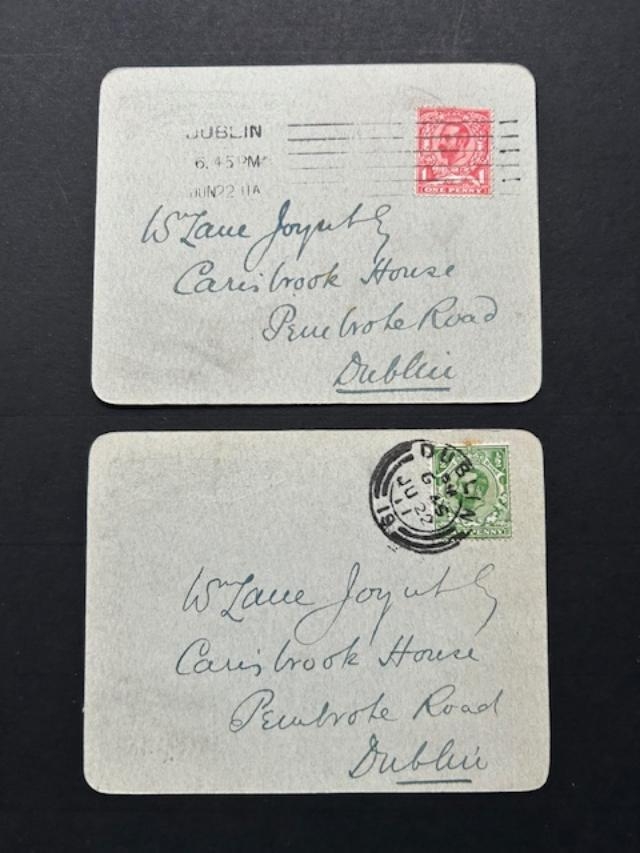 DUBLIN
6.45PM
JUN22 11A
1 1
ONE PENNY
Wm Lane Joynt Esq
Carisbrook House
Pembroke Road
Dublin
DUBLIN
6 45 PM
JU 22
11
19
½
PENNY
Wm Lane Joynt Esq
Carisbrook House
Pembroke Road
Dublin